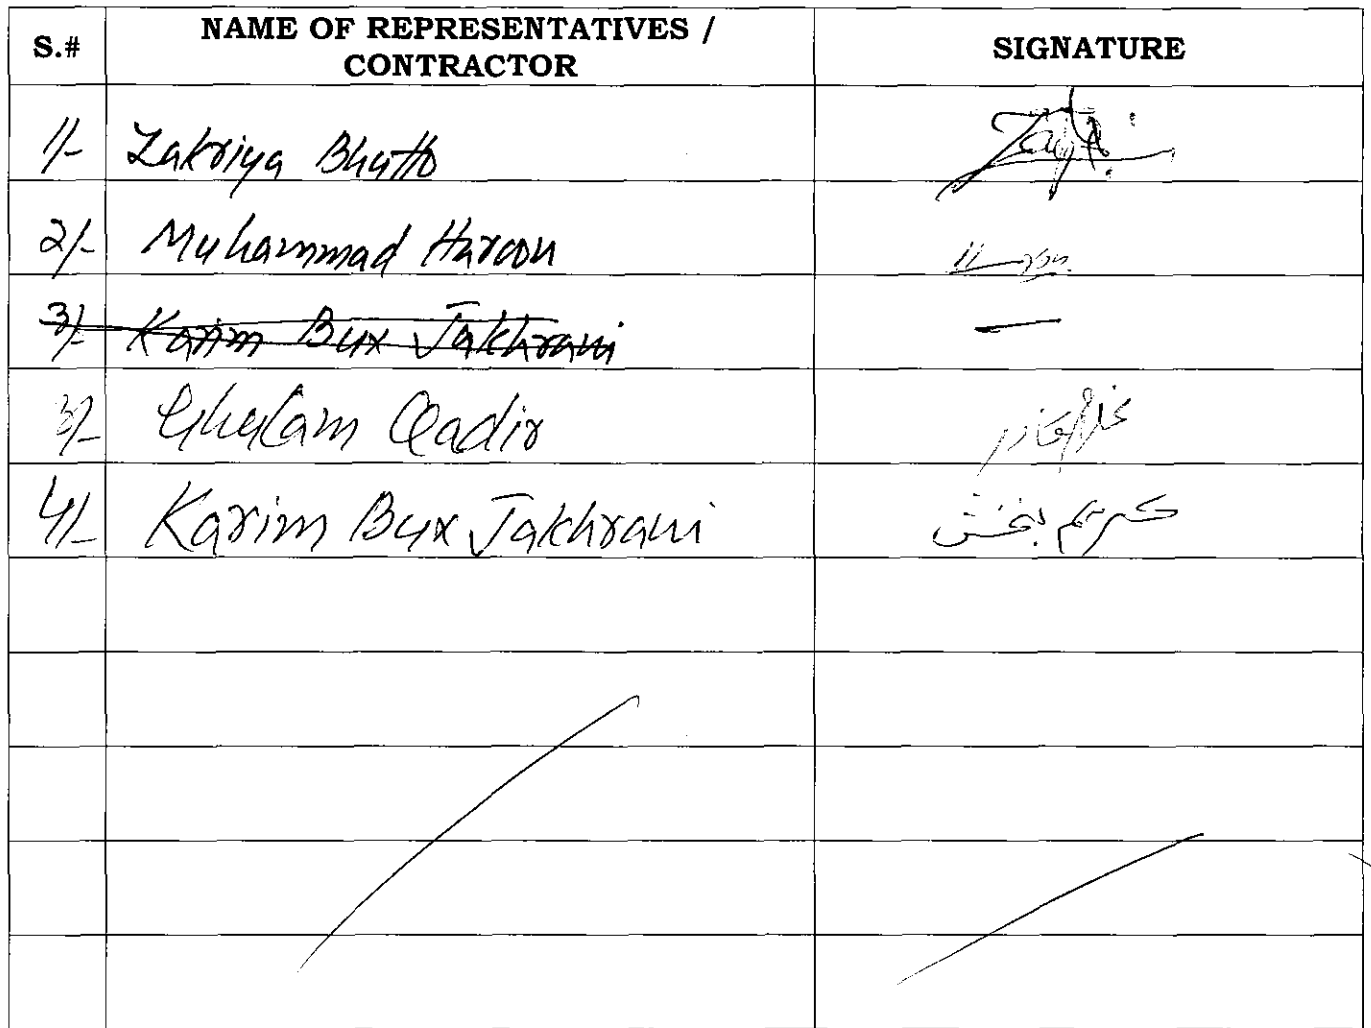 S.# NAME OF REPRESENTATIVES / CONTRACTOR SIGNATURE
1/- Zakriya Bhutto
2/- Muhammad Haroon
3/- Karim Bux Jakhrani —
3/- Ghulam Qadir غلام قادر
4/- Karim Bux Jakhrani کریم بخش